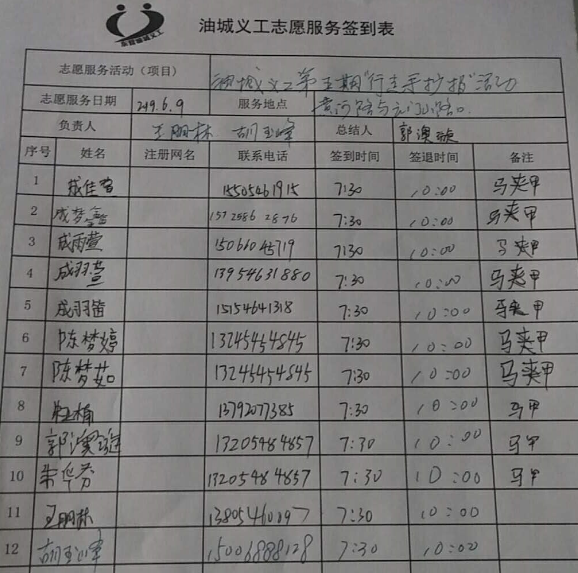 油城义工志愿服务签到表
东营油城义工
志愿服务活动（项目） 油城义工第五期"行走手抄报"活动
志愿服务日期 2019.6.9 服务地点 黄河路与
负责人 王丽林 胡玉峰 总结人 郭澳
序号 姓名 注册网名 联系电话 签到时间 签退时间 备注
1 成佳萱 15505461915 7:30 10:00 马夹甲
2 成梦鑫 157 2586 2876 7:30 10:00 马夹甲
3 成雨萱 15066045719 7:30 10:00 马夹甲
4 成羽萱 13954631880 7:30 10:00 马夹甲
5 成羽笛 15154641318 7:30 10:00 马夹甲
6 陈梦婷 13245454845 7:30 10:00 马夹甲
7 陈梦茹 13245454845 7:30 10:00 马夹甲
8 13792077385 7:30 10:00 马甲
9 郭澳 13205484857 7:30 10:00 马甲
10 朱华芬 13205484857 7:30 10:00 马甲
11 王丽林 7:30 10:00
12 胡玉峰 15006888128 7:30 10:00